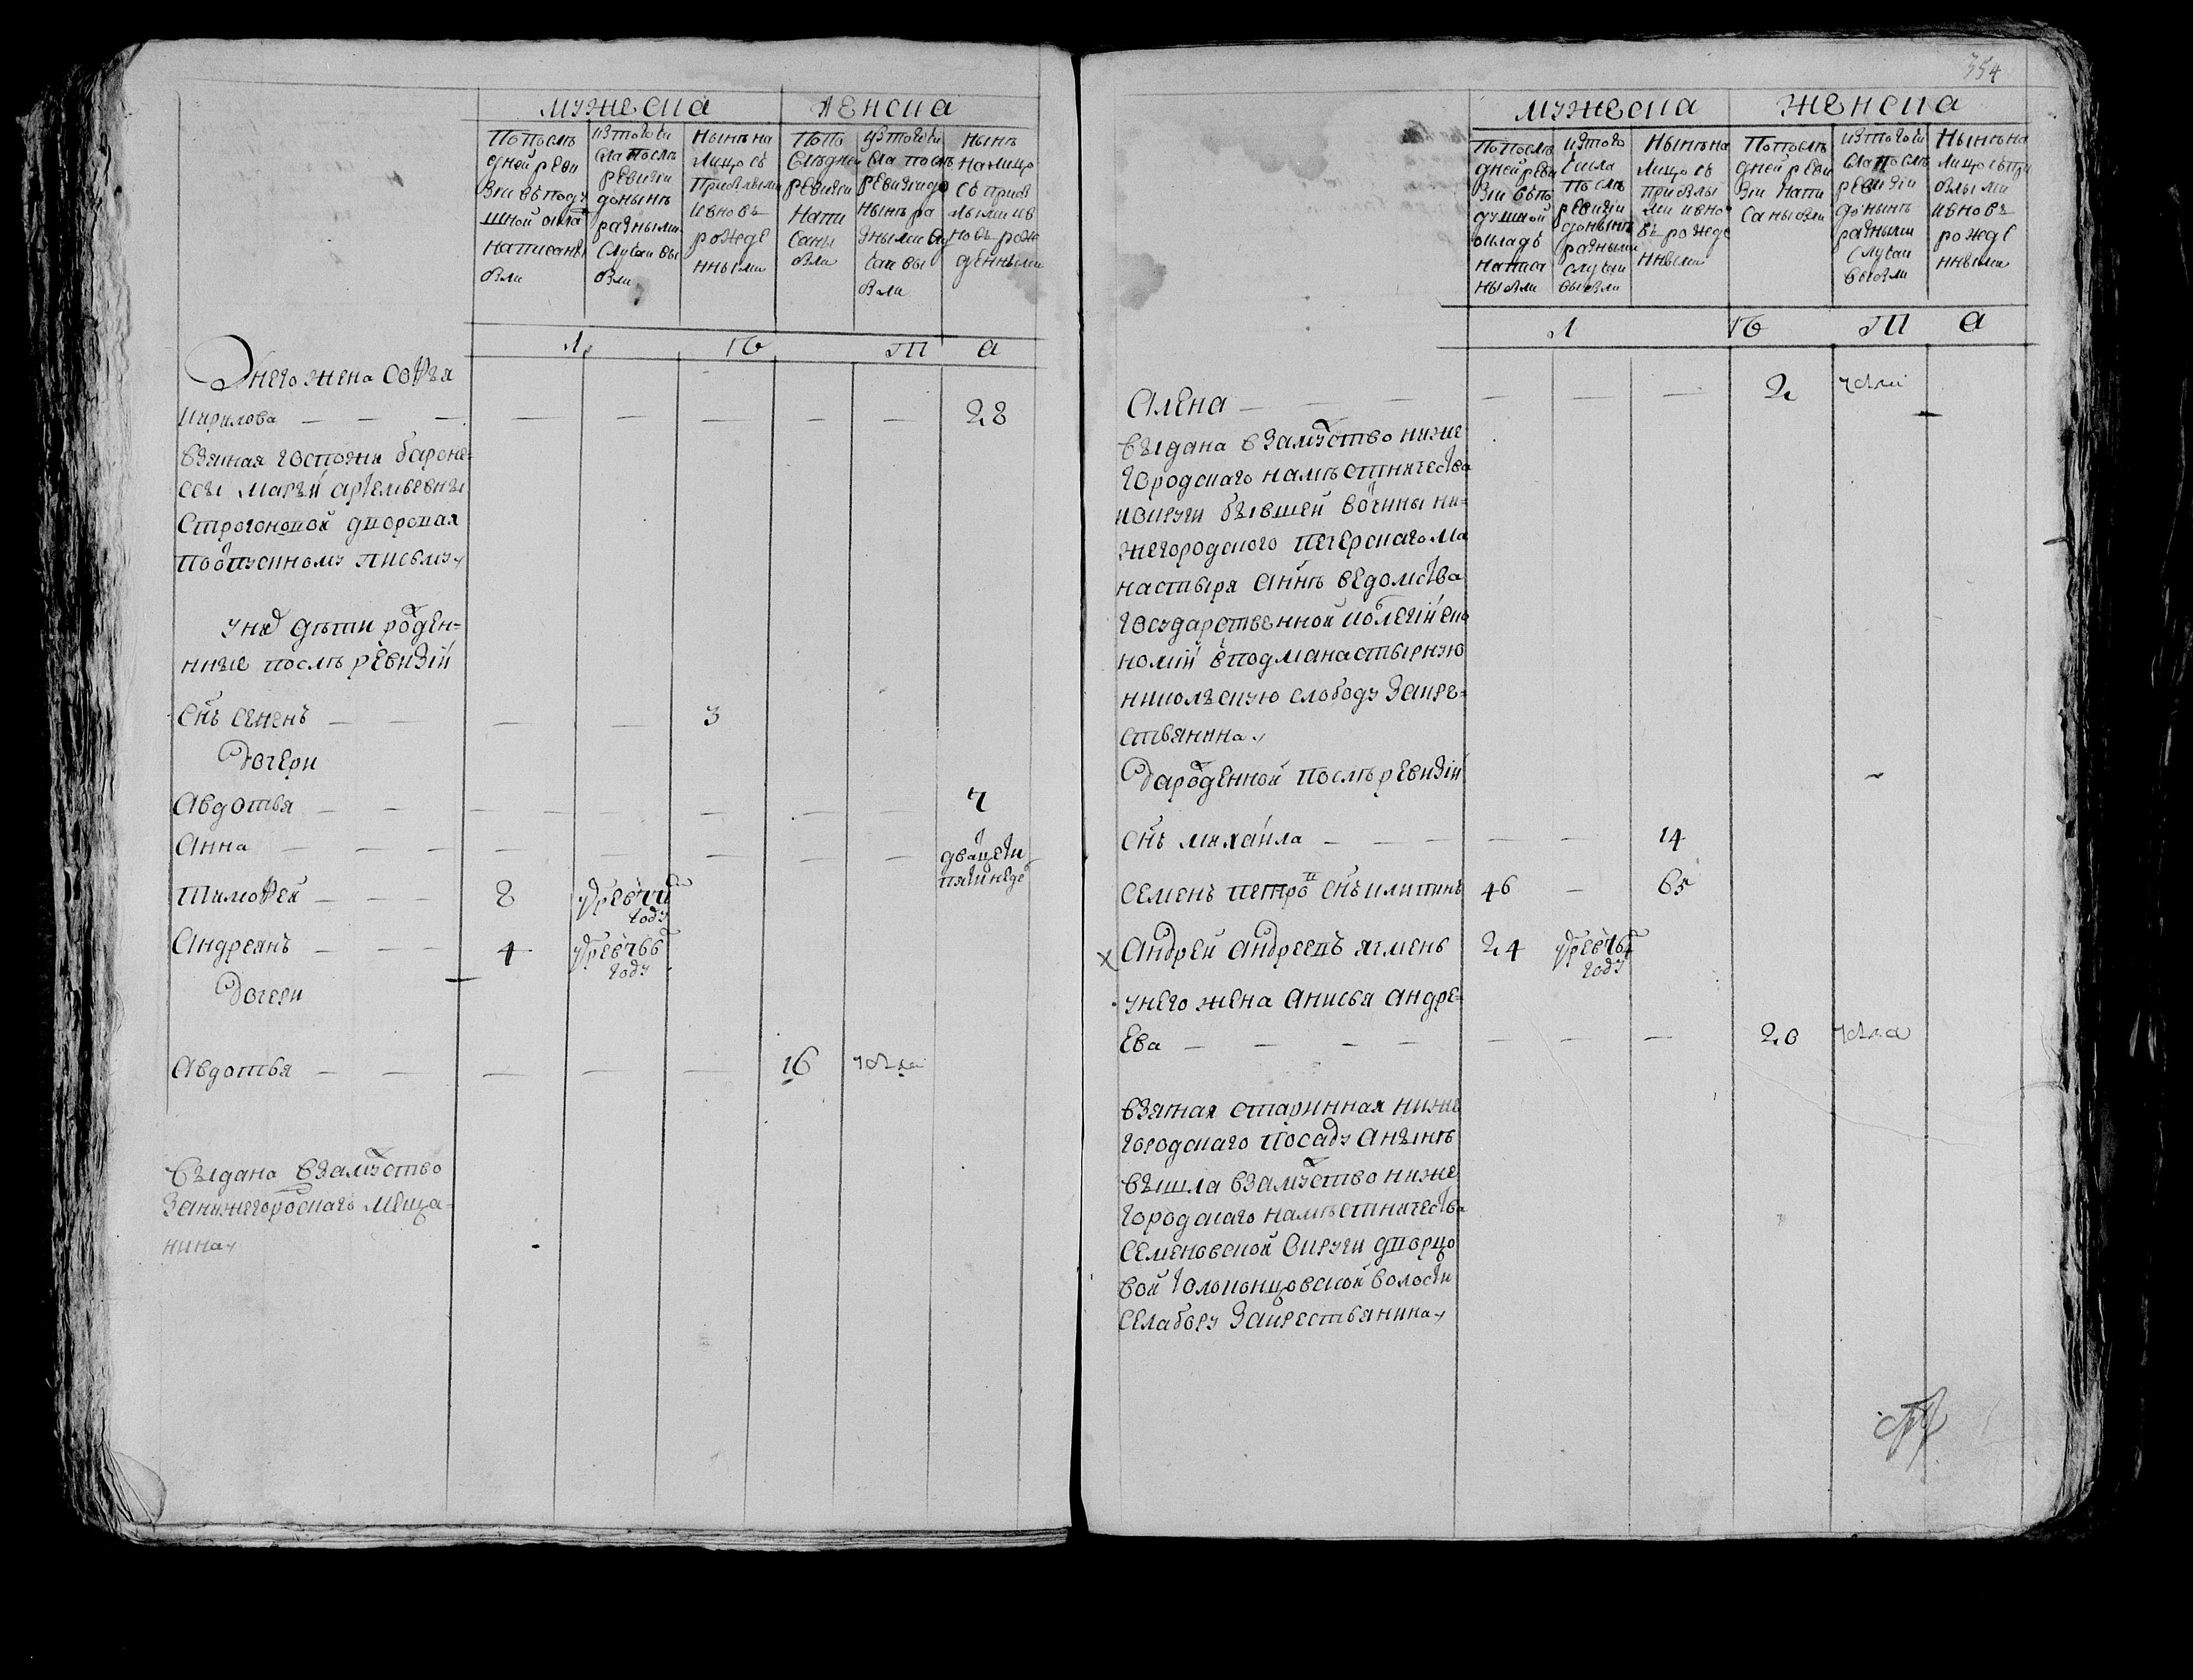 мужеска женска
Попослѣ
дней реви
зіи вподу
шной окла
написаны
были
изтого чи
сла послѣ
ревизіи
донынѣ
разными
случаи вы
были
Нынѣ на
лицо съ
прибылыми
ивновь
рожде
нными
Попо
слѣдней
ревизіи
напи
саны
были
изтого чи
сла послѣ
ревизіи до
нынѣ ра
зными слу
чаи вы
были
Нынѣ
налицо
съ приб
лыми ив
новь рож
денными
Л Ѣ Т А
У него жена софья
кирилова — — — 28
взятая госпожи бароне-
ссы марьи артемьевны
строгоновой дворовая
поотпускному письму
у них дѣти рожден-
ные послѣ ревизіи
снъ семенъ — — 3
Дочери
Авдотья — — 7
Анна — — — двацети
пяти неде
Тимофей — — — 8 умре в 771
году
Андреянъ — — — 4 умре в 766
году
Дочери
Авдотья — — — 16 была
выдана взамужство
занижегородскаго меща-
нина
354
мужеска женска
Попослѣ
дней реви
зіи вьпо
душной
окладъ
написа
ны были
изтого
числа
послѣ
ревизіи
донынѣ
разными
случаи
выбыли
Нынѣ на
лицо съ
прибылы
ми ивно
вь рожде
нными
Попослѣ
дней реви
зіи напи
саны были
изтого чи
сла послѣ
ревизіи
донынѣ
разными
случаи
выбыли
Нынѣ на
лицо съ при
былыми
ивновь
рожде
нными
Л Ѣ Т А
Алена — — — 2 была
выдана взамужство ниже
городскаго намѣстничества
иокруги бывшей вочины ни-
жегородскаго печерскаго ма
настыря а нынѣ ведомства
государственной колегіи еко
номіи вподманастырную
никольскую слободу закре-
стьянина
Да рожденной послѣ ревизіи
снъ михаила — — — 14
Семенъ петровъ снъ килитинъ 46 — 65
х Андрей андреевъ ячмень 24 умре в 764
году
у него жена анисья андре-
ева — — — 20 была
взятая старинная ниже
городскаго посаду а нынѣ
вышла взамужство ниже
городскаго намѣстничества
семеновской округи дворцо
вой толоконцовской волости
села бору закрестьянина